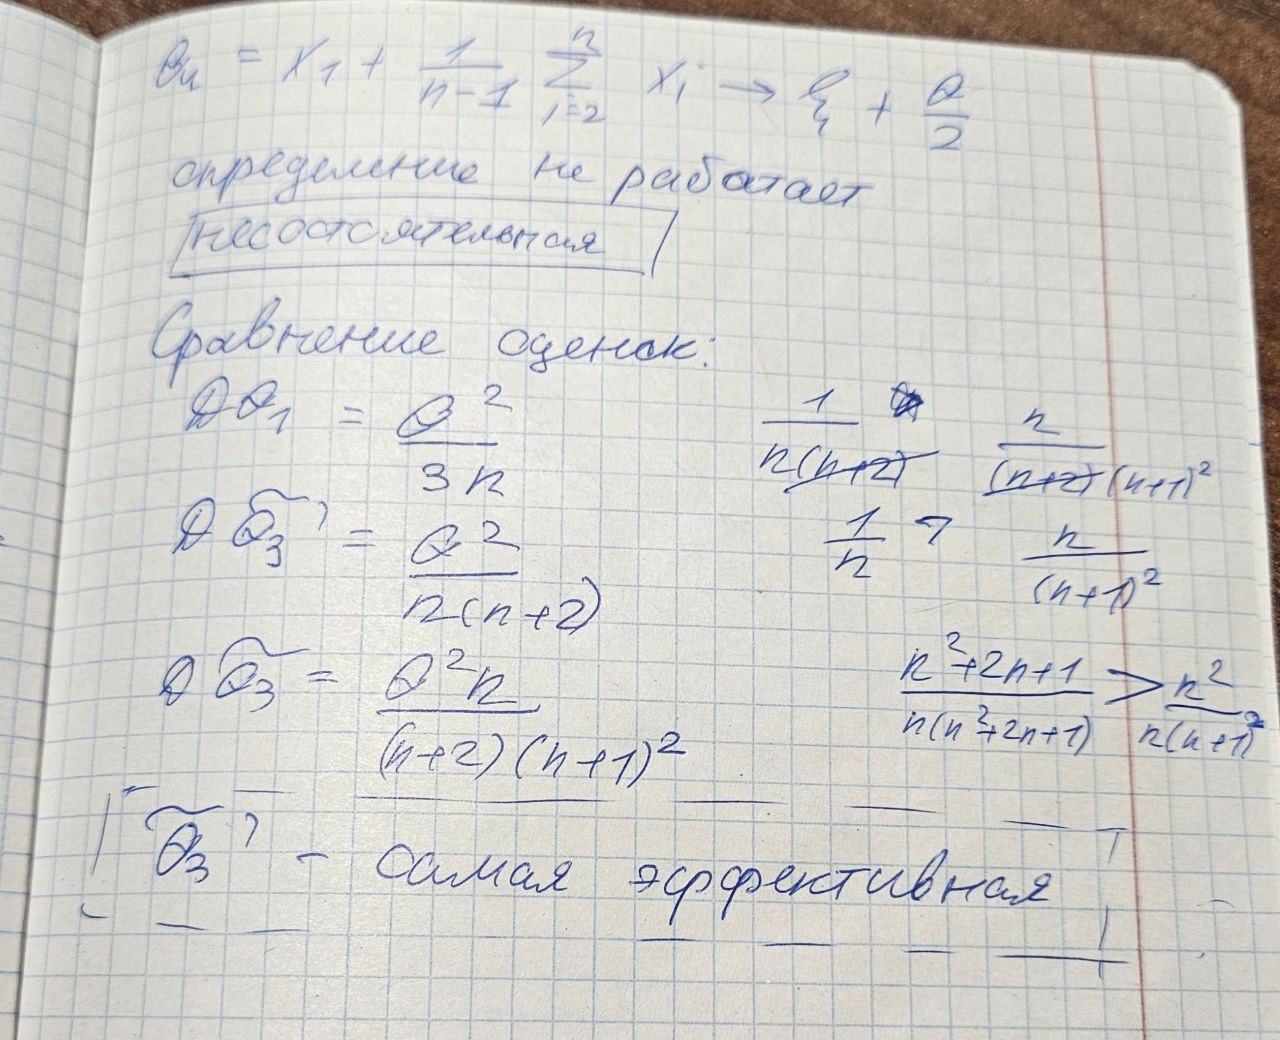 θ₄ = x₁ + 1/(n-1) Σ_{i=2}^{n} xᵢ → ξ + θ/2
определение не работает
несостоятельная
Сравнение оценок:
Dθ₁ = θ²/(3n)
1/(n(n+2)) n/((n+2)(n+1)²)
Dθ̃₃' = θ²/(n(n+2))
1/n > n/(n+1)²
Dθ̃₃ = θ²n/((n+2)(n+1)²)
(n²+2n+1)/(n(n²+2n+1)) > n²/(n(n+1)²)
θ̃₃' - самая эффективная